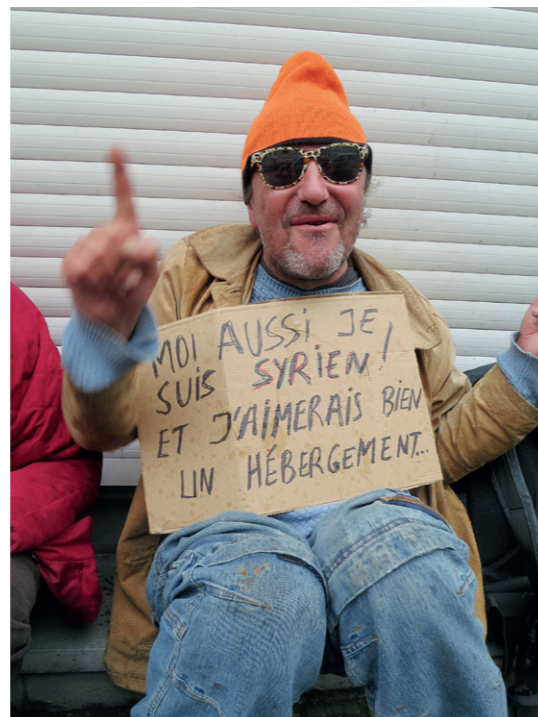 MOI AUSSI JE
SUIS SYRIEN!
ET J'AIMERAIS BIEN
UN HÉBERGEMENT...